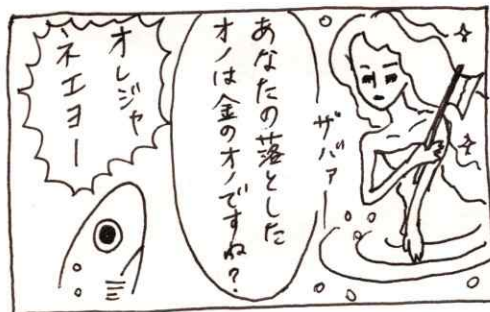 ザバァー
あなたの落とした
オノは金のオノですね?
オレジャ
ネエヨー